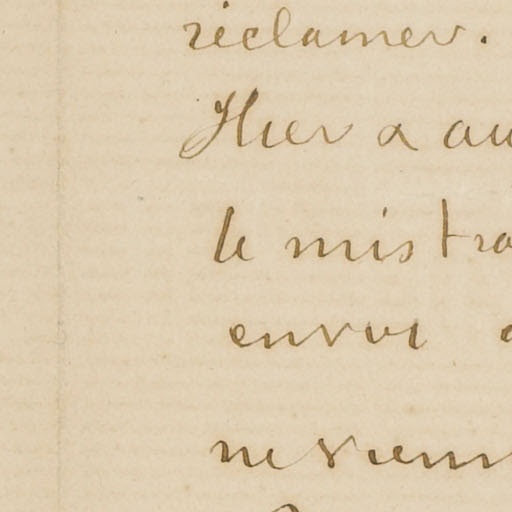 réclamer.
Hier & au
le mistra
envoi
ne vienn